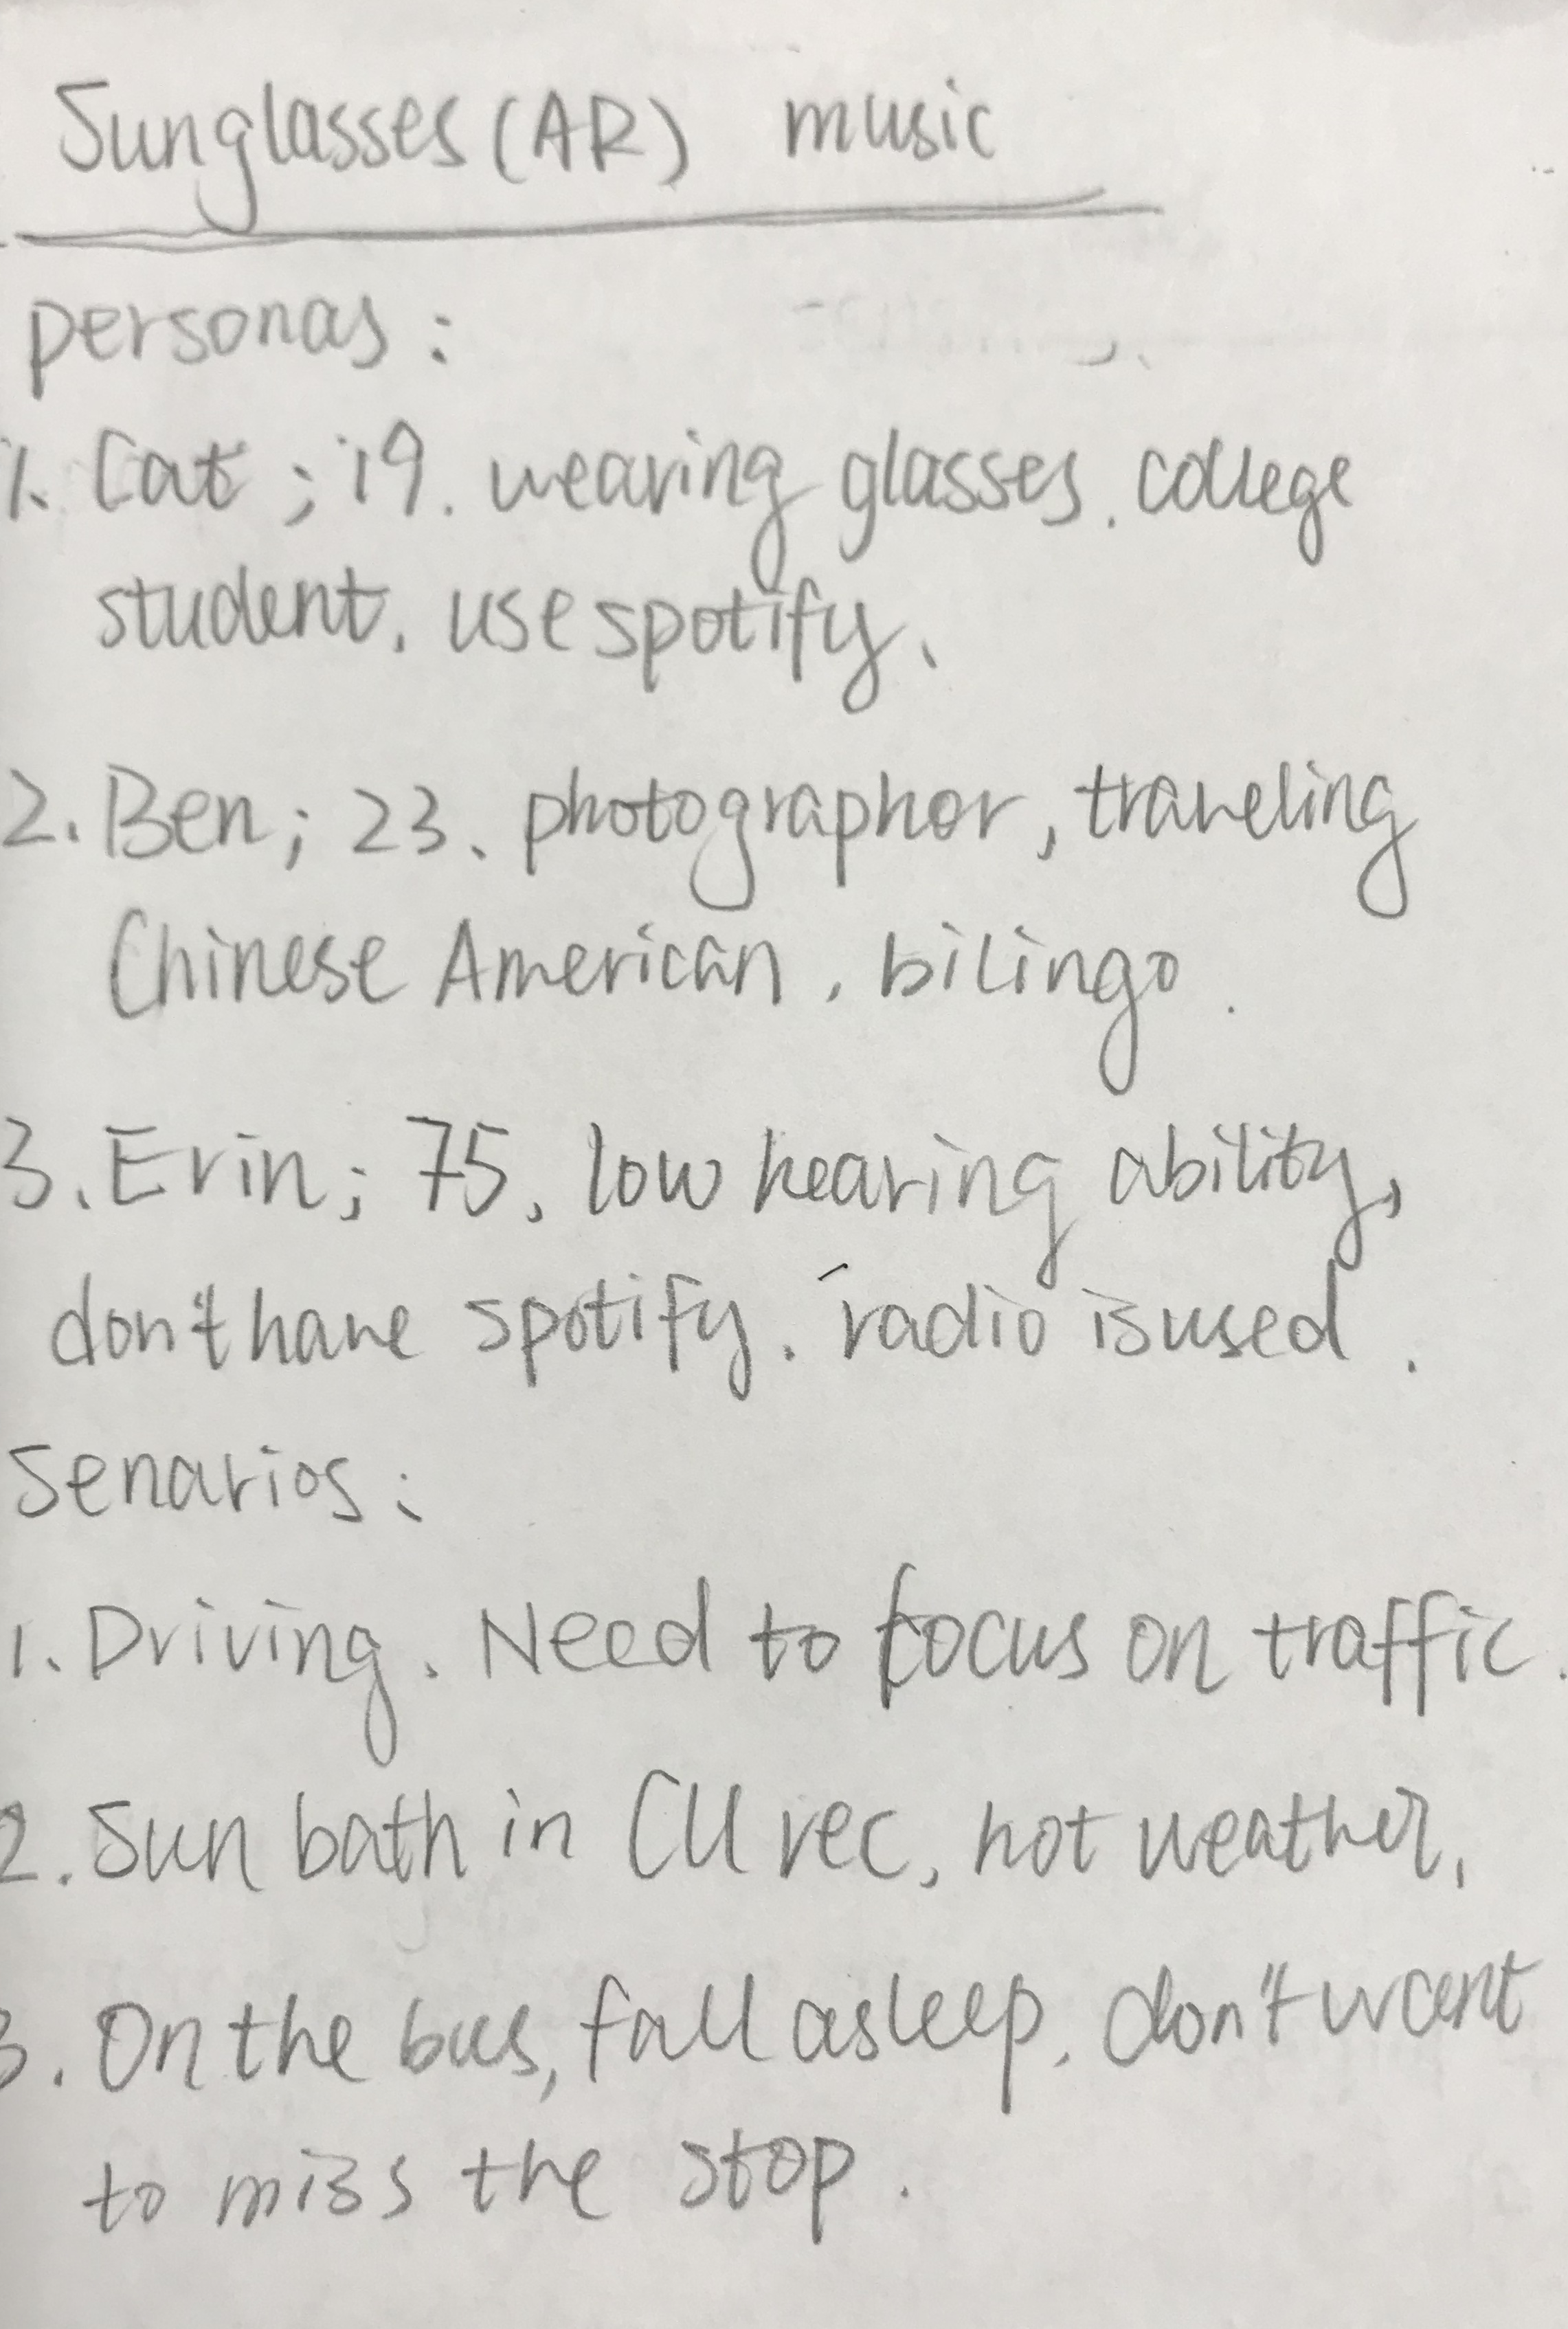 Sunglasses (AR) music
personas :
1. Cat ; 19. wearing glasses. college
student. use spotify.
2. Ben ; 23. photographor, traveling
Chinese American, bilingo.
3. Erin ; 75. low hearing ability,
don't have spotify. radio is used.
Senarios :
1. Driving. Need to focus on traffic.
2. Sun bath in CU rec, hot weather,
3. On the bus, fall asleep. don't want
to miss the stop.